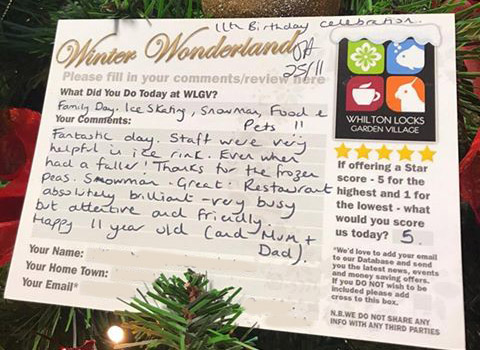 11th Birthday celebration.
Winter Wonderland
25/11
Please fill in your comments/review here
What Did You Do Today at WLGV?
Family Day. Ice Skating, Snowman, Food &
Pets !!
Your Comments:
Fantastic day. Staff were very
helpful in ice rink. Even when
had a faller! Thanks for the frozen
peas. Snowman - Great. Restaurant
absolutely brilliant - very busy
but attentive and friendly.
Happy 11 year old (and Mum +
Dad).
Your Name:
Your Home Town:
Your Email*
WHILTON LOCKS
GARDEN VILLAGE
If offering a Star
score - 5 for the
highest and 1 for
the lowest - what
would you score
us today? 5.
*We'd love to add your email
to our Database and send
you the latest news, events
and money saving offers.
If you DO NOT wish to be
included please add
cross to this box.
N.B.WE DO NOT SHARE ANY
INFO WITH ANY THIRD PARTIES